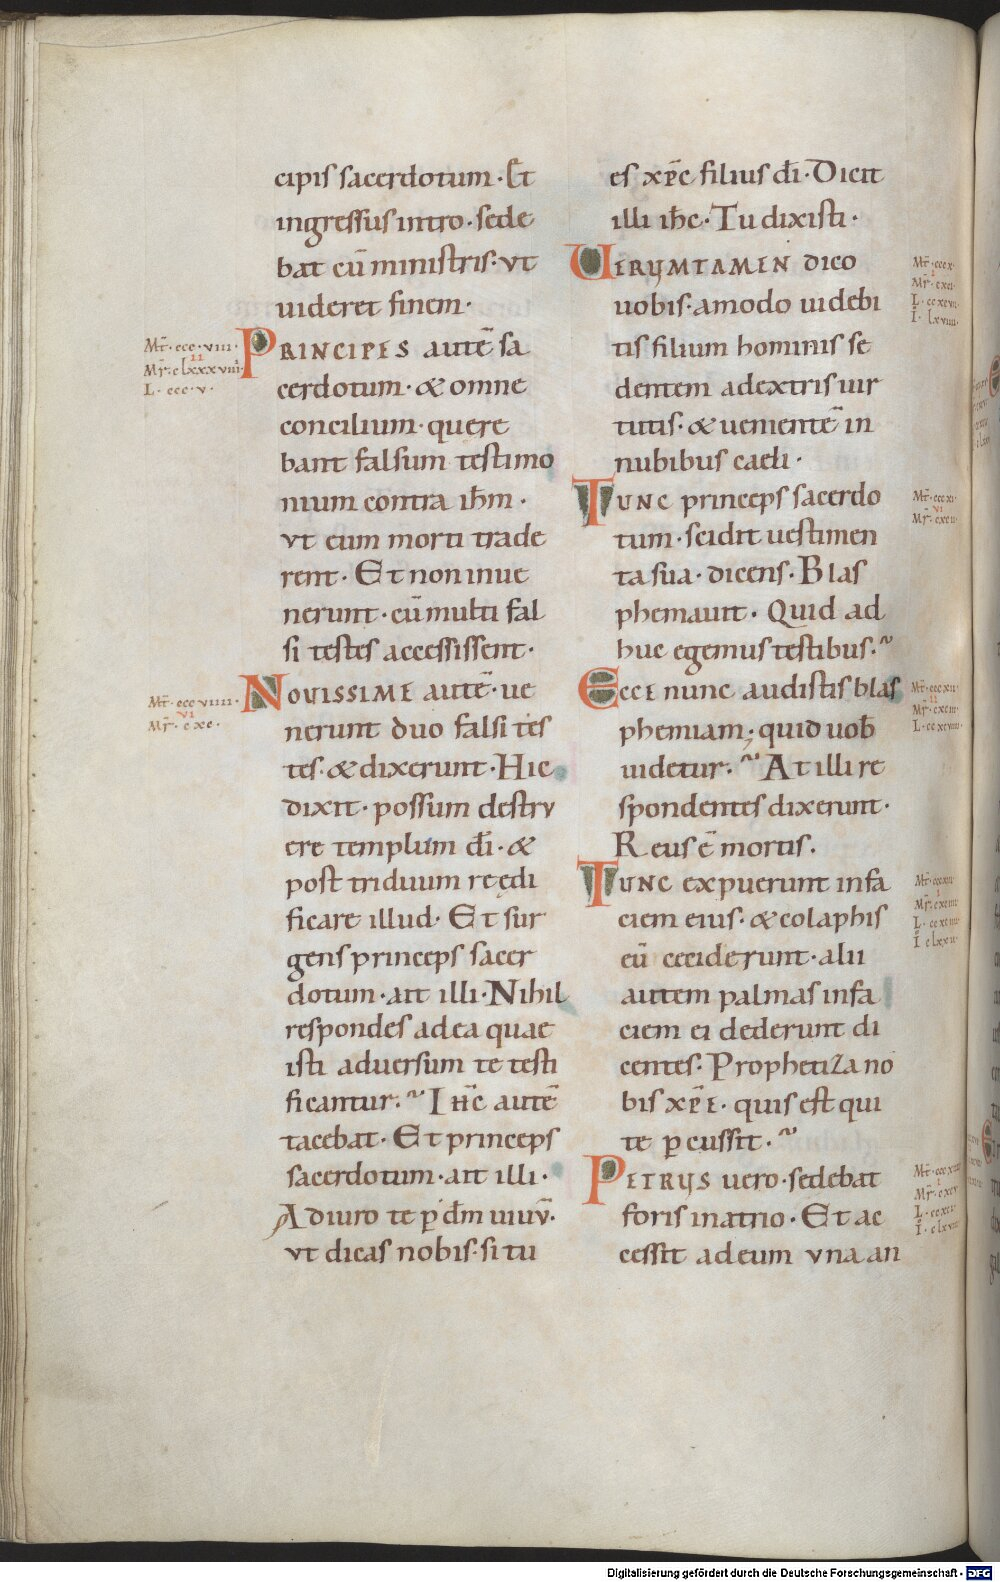 cipis sacerdotum · Et
ingressus intro · sede
bat cū ministris · vt
uideret finem ·
Mt̄ · ccc · viii ·
II
Mr̄ · clxxxviii ·
L · ccc · v ·
PRINCIPES autē sa
cerdotum · & omne
concilium · quere
bant falsum testimo
nium contra ih̄m ·
vt eum morti trade
rent · Et non inue
nerunt · cū multi fal
si testes accessissent ·
Mt̄ · ccc viiii ·
VI
Mr̄ · cxc ·
NOVISSIME autē · ue
nerunt duo falsi tes
tes · & dixerunt · Hic
dixit · possum destrv
ere templum dī · &
post triduum reędi
ficare illud · Et sur
gens princeps sacer
dotum · ait illi · Nihil
respondes ad ea quae
isti adversum te testi
ficantur · IHC̄ autē
tacebat · Et princeps
sacerdotum · ait illi ·
Adiuro te p̄ dm̄ uiuv̄ ·
vt dicas nobis · si tu
es xp̄c filius dī · Dicit
illi ih̄c · Tu dixisti ·
VERUMTAMEN dico
uobis · amodo uidebi
tis filium hominis se
dentem adextris uir
tutis · & uenientē in
nubibus caeli ·
Mt̄ · ccc x ·
I
Mr̄ · cxci ·
L · cc xcvii
I · lxviiii ·
TUNC princeps sacerdo
tum · scidit uestimen
ta sua · dicens · Blas
phemauit · Quid ad
huc egemus testibus ·
Mt̄ · ccc xi ·
VI
Mr̄ · cxcii
ECCE nunc audistis blas
phemiam · quid uob̄
uidetur · At illi re
spondentes dixerunt ·
Reus ē mortis ·
Mt̄ · ccc xii ·
II
Mr̄ · cxciii ·
TUNC expuerunt infa
ciem eius · & colaphis
cū ceciderunt · alii
autem palmas infa
ciem ei dederunt di
centes · Prophetiza no
bis xp̄e · quis est qui
te p̄cussit ·
Mt̄ · ccc xiii
I
Mr̄ · cxciiii
PETRUS uero · sedebat
foris in atrio · Et ac
cessit ad eum vna an
Digitalisierung gefördert durch die Deutsche Forschungsgemeinschaft - DFG